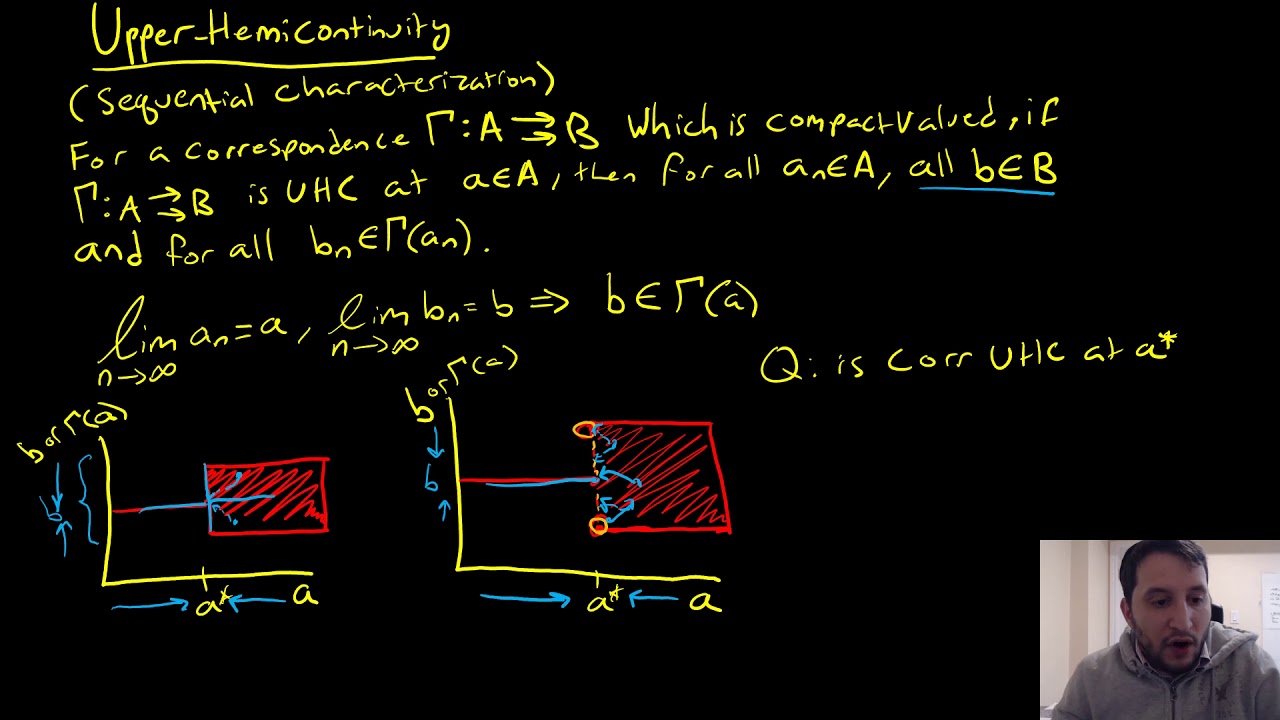 Upper-Hemicontinuity
(Sequential characterization)
For a correspondence Γ:A⇉B which is compact valued, if
Γ:A⇉B is UHC at a∈A, then for all aₙ∈A, all b∈B
and for all bₙ∈Γ(aₙ).
lim aₙ=a, lim bₙ=b ⇒ b∈Γ(a)
n→∞ n→∞
Q: is Corr UHC at a*
b or Γ(a)
b
a* a
b or Γ(a)
b
a* a